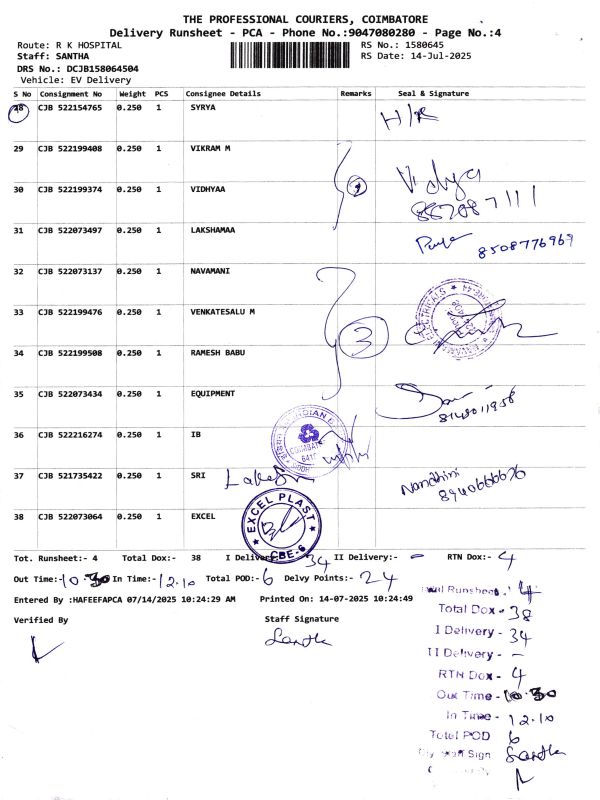 THE PROFESSIONAL COURIERS, COIMBATORE
Delivery Runsheet - PCA - Phone No.:9047080280 - Page No.:4
Route: R K HOSPITAL
RS No.: 1580645
Staff: SANTHA
RS Date: 14-Jul-2025
DRS No.: DCJB158064504
Vehicle: EV Delivery
S No Consignment No Weight PCS Consignee Details Remarks Seal & Signature
28 CJB 522154765 0.250 1 SYRYA H/R
29 CJB 522199408 0.250 1 VIKRAM M
30 CJB 522199374 0.250 1 VIDHYAA Vidya
8870887111
31 CJB 522073497 0.250 1 LAKSHAMAA 8508776969
32 CJB 522073137 0.250 1 NAVAMANI
33 CJB 522199476 0.250 1 VENKATESALU M 3 ELECTRICALS
34 CJB 522199508 0.250 1 RAMESH BABU
35 CJB 522073434 0.250 1 EQUIPMENT
36 CJB 522216274 0.250 1 IB
37 CJB 521735422 0.250 1 SRI Nandhini
8940666676
38 CJB 522073064 0.250 1 EXCEL EXCEL PLAST CBE-6
Tot. Runsheet:- 4 Total Dox:- 38 I Delivery:- 34 II Delivery:- - RTN Dox:- 4
Out Time:- 10.30 In Time:- 12.10 Total POD:- 6 Delvy Points:- 24
Entered By :HAFEEFAPCA 07/14/2025 10:24:29 AM Printed On: 14-07-2025 10:24:49
Verified By Staff Signature
Santha
Runsheet 4
Total Dox - 38
I Delivery - 34
II Delivery - -
RTN Dox - 4
Out Time - 10.30
In Time - 12.10
Total POD 6
Sign Santha